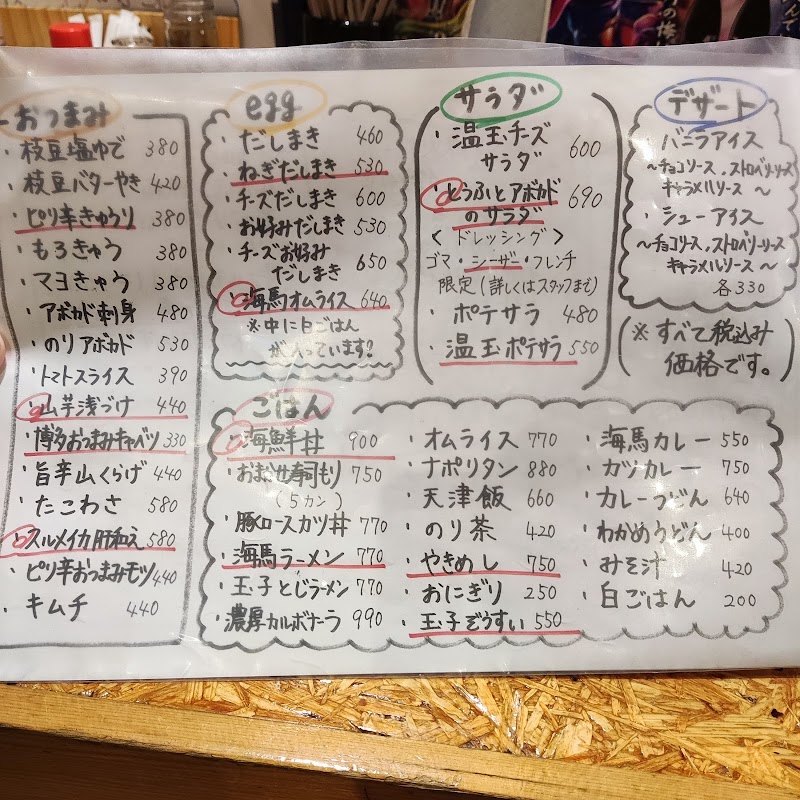 おつまみ
・枝豆塩ゆで 380
・枝豆バターやき 420
・ピリ辛きゅうり 380
・もろきゅう 380
・マヨきゅう 380
・アボカド刺身 480
・のりアボカド 530
・トマトスライス 390
・山芋浅づけ 440
・博多おつまみキャベツ 330
・旨辛山くらげ 440
・たこわさ 580
・スルメイカ肝和え 580
・ピリ辛おつまみモツ 440
・キムチ 440
egg
・だしまき 460
・ねぎだしまき 530
・チーズだしまき 600
・お好みだしまき 530
・チーズお好み
だしまき 650
・海馬オムライス 640
※中に白ごはん
が入っています?
サラダ
・温玉チーズ
サラダ 600
・とうふとアボカド
のサラダ 690
<ドレッシング>
ゴマ・シーザー・フレンチ
限定(詳しくはスタッフまで)
・ポテサラ 480
・温玉ポテサラ 550
デザート
・バニラアイス
~チョコソース、ストロベリーソース
キャラメルソース ~
・シューアイス
~チョコソース、ストロベリーソース
キャラメルソース ~
各330
(※すべて税込み
価格です。)
ごはん
・海鮮丼 900
・おまかせ寿司もり 750
(5カン)
・豚ロースカツ丼 770
・海馬ラーメン 770
・玉子とじラーメン 770
・濃厚カルボナーラ 990
・オムライス 770
・ナポリタン 880
・天津飯 660
・のり茶 420
・やきめし 750
・おにぎり 250
・玉子ぞうすい 550
・海馬カレー 550
・カツカレー 750
・カレーうどん 640
・わかめうどん 400
・みそ汁 420
・白ごはん 200